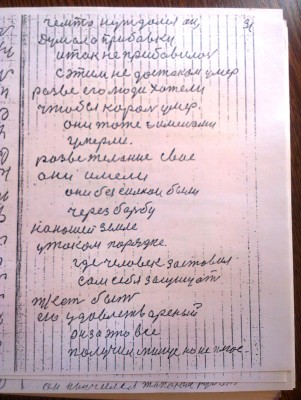 чемто нуждался он
Думал о прибавки
итак не прибавилос
с этим не достатком умер
разве его люди хотели
чтобы каром умер.
они тоже с имеыами
умерли.
разве желание свае
они имели
они без силной были
через барбу
на нашей земле
у таком порядке.
где человек заставил
сам себя защищат
жет быт
его удовлетвареный
он за это все
получил
он научился